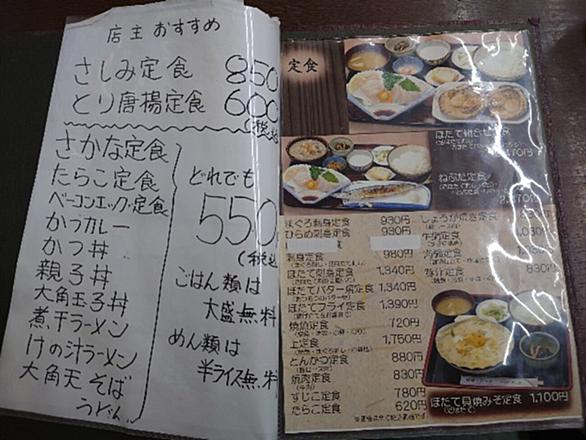 店主おすすめ
さしみ定食 850
とり唐揚定食 600
(税込
さかな定食
たらこ定食
ベーコンエッグ定食
かつカレー
かつ丼
親子丼
大角玉子丼
煮干ラーメン
けの汁ラーメン
大角天そば
うどん
どれでも
550
(税込
ごはん類は
大盛無料
めん類は
半ライス無料
定食
ほたて組合せ定食
ねぶた定食
まぐろ刺身定食 930円
ひらめ刺身定食 930円
刺身定食 980円
ほたて刺身定食 1,340円
ほたてバター焼定食 1,340円
ほたてフライ定食 1,390円
焼魚定食 720円
上定食 1,750円
とんかつ定食 880円
焼肉定食 830円
すじこ定食 780円
たらこ定食 620円
しょうが焼き定食
830円
ほたて貝焼みそ定食 1,100円